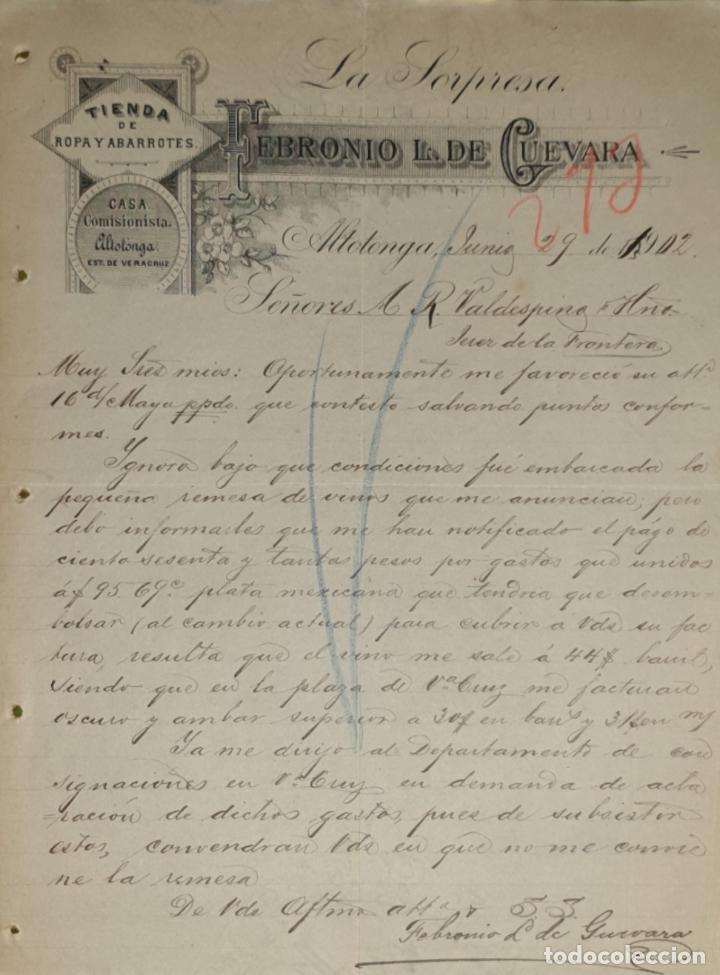 La Sorpresa.
TIENDA
DE
ROPA Y ABARROTES.
FEBRONIO L. DE GUEVARA
CASA
Comisionista.
Altotonga.
EST. DE VERACRUZ
279
Altotonga, Junio 29 de 1902.
Señores A. R. Valdespino & Hno.
Jerez de la Frontera
Muy Sres mios: Oportunamente me favoreció su attª
16 d/ Mayo ppdo. que contesto salvando puntos confor-
mes.
Ignoro bajo que condiciones fué embarcada la
pequeña remesa de vinos que me anuncian; pero
debo informarles que me han notificado el págo de
ciento sesenta y tantos pesos por gastos que unidos
á $ 95.69c. plata mexicana que tendria que desem-
bolsar (al cambio actual) para cubrir á Vds su fac
tura, resulta que el vino me sale á 44$ barril,
siendo que en la plaza de Vª Cruz me facturan
oscuro y ambar superior a 30$ en bars y 31$ en
Ya me dirijo al Departamento de con
signaciones en Vª Cruz en demanda de acla
=ración de dichos gastos, pues de subsistir
estos, convendran Vds en que no me convie
ne la remesa
De Vds Aftmo attº y S. S.
Febronio L. de Guevara
todocoleccion